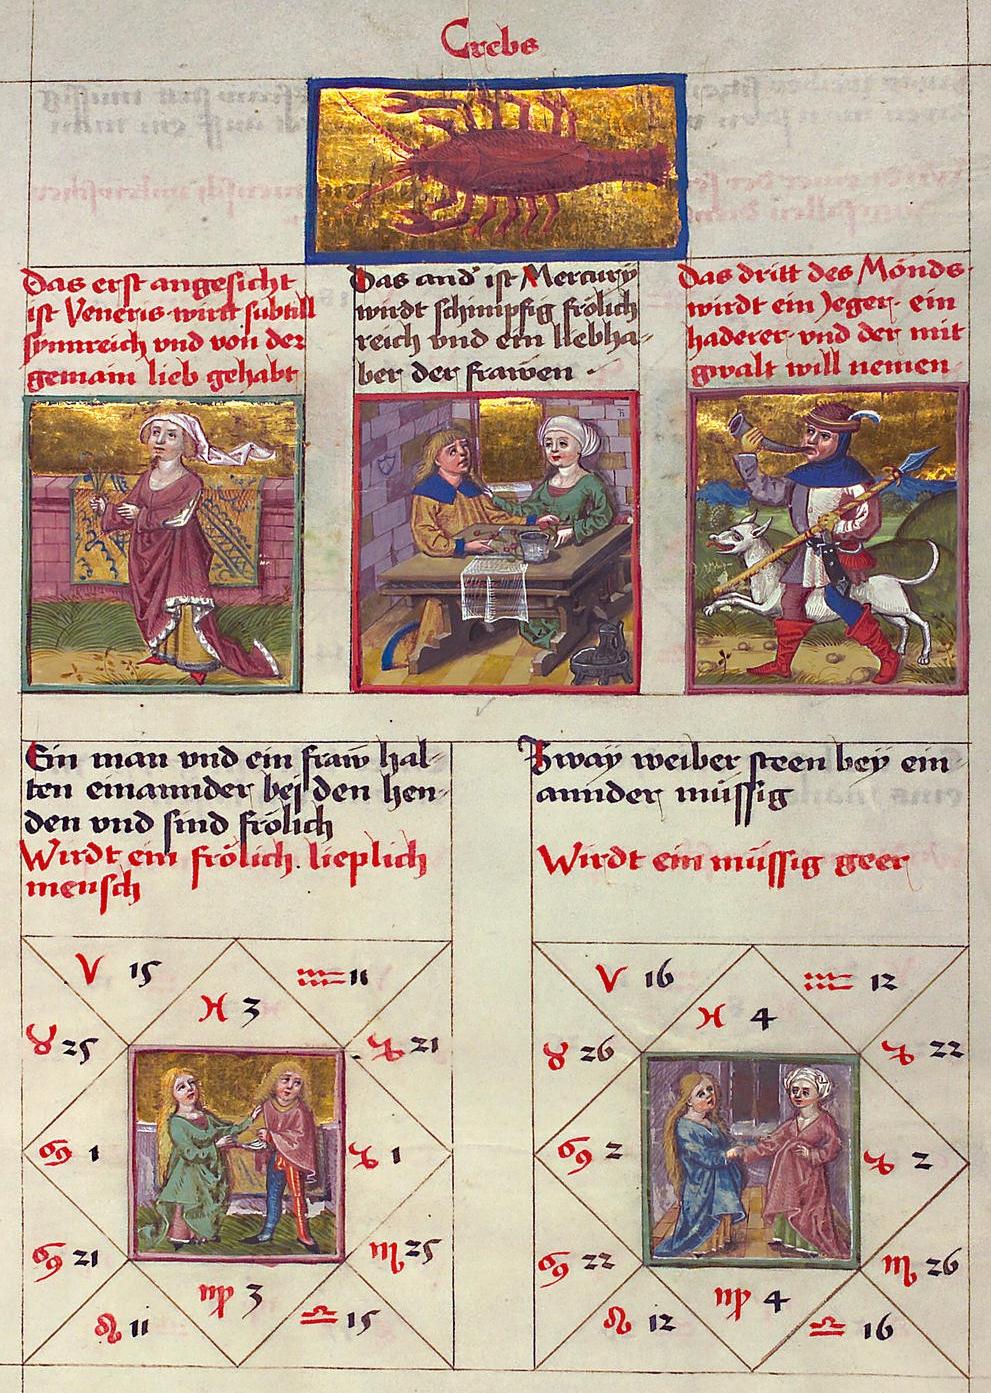 Crebs
Das erst angesicht
ist Veneris wirtt subtill
synnreich vnd von der
gemain lieb gehabt
Das and' ist Mercury
wirdt schimpfig frölich
reich vnd ein liebha-
ber der frawen ·
Das dritt des Mónds·
wirdt ein Jeger· ein
haderer· vnd der mit
gwalt will nemen
Ein man vnd ein fraw hal-
ten einannder bej den hen-
den vnd sind frölich
Wirdt ein frölich. lieplich
mensch
♈ 15
♒ 11
♓ 3
♉ 25
♑ 21
♋ 1
♑ 1
♋ 21
♏ 25
♍ 3
♌ 11
♎ 15
Zway weiber steen bey ein-
annder müssig
Wirdt ein müssig geer
♈ 16
♒ 12
♓ 4
♉ 26
♑ 22
♋ 2
♑ 2
♋ 22
♏ 26
♍ 4
♌ 12
♎ 16